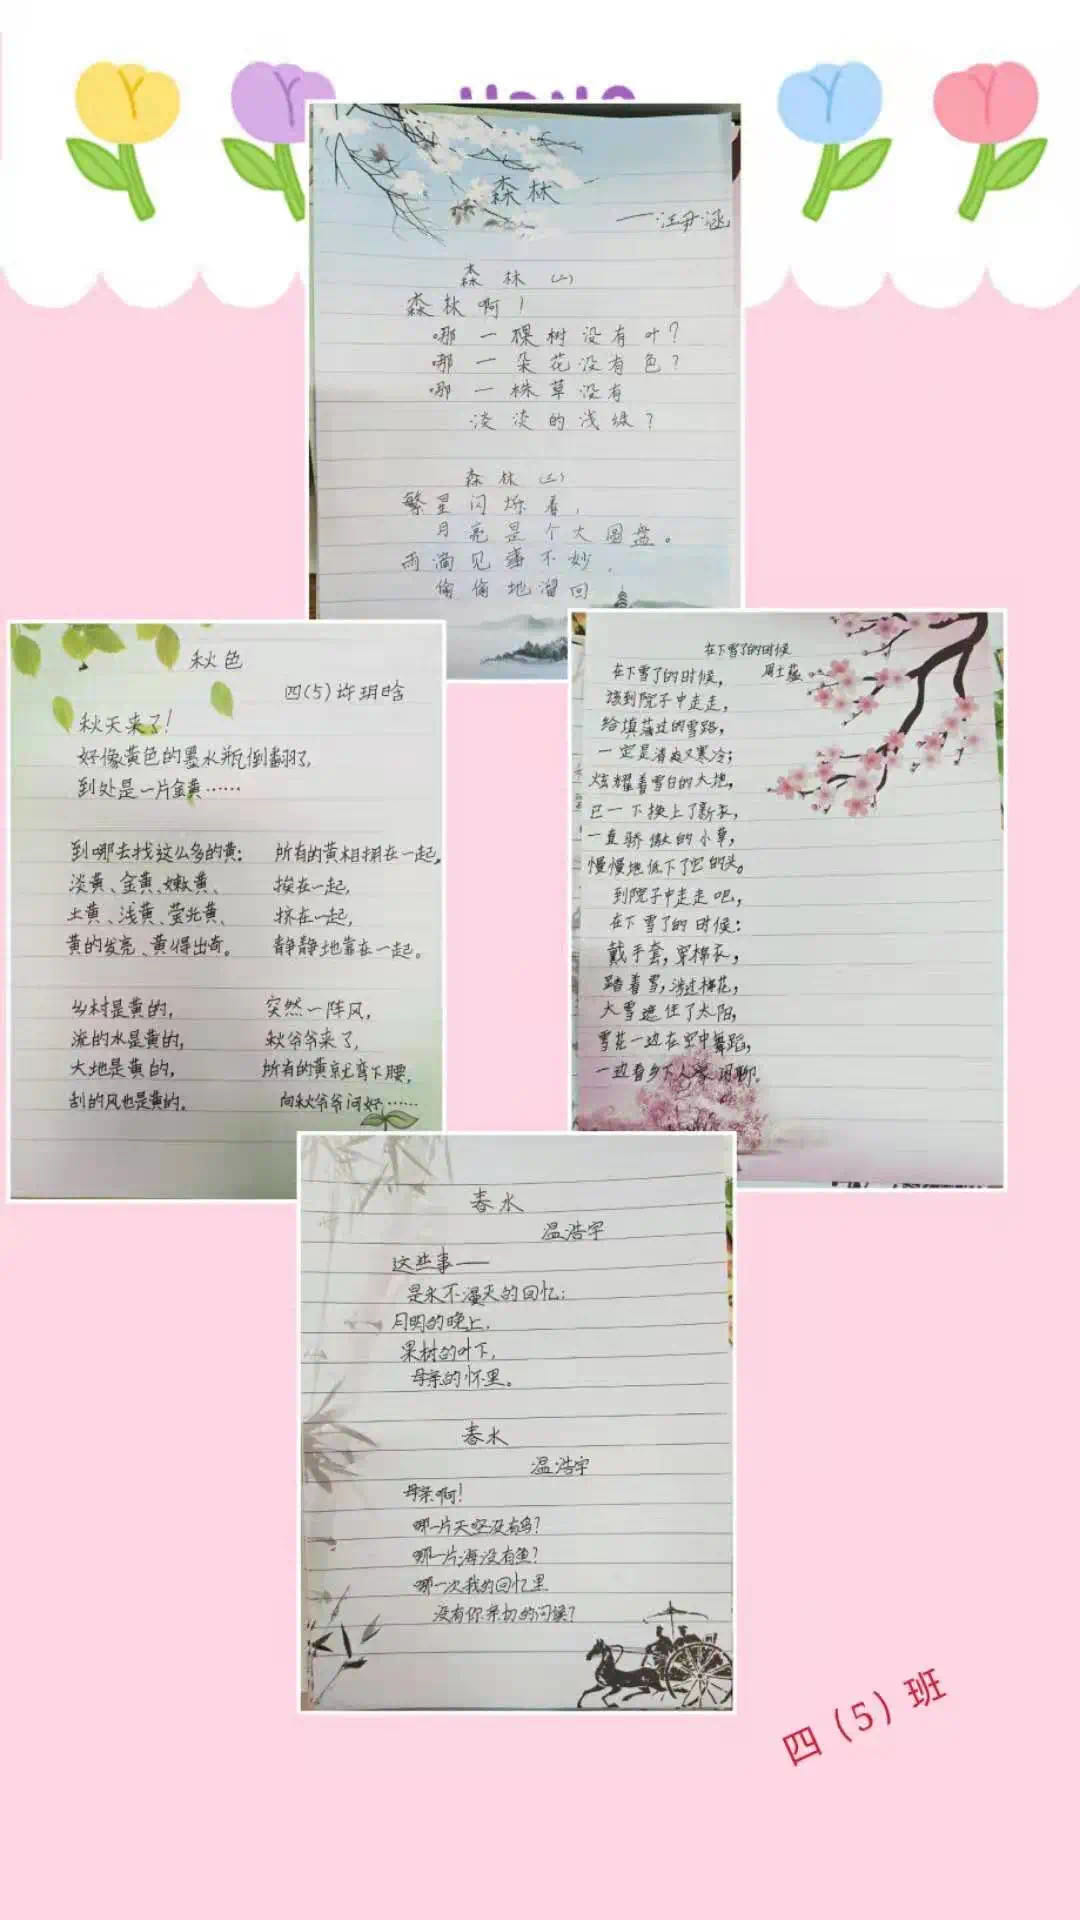 森林
——汪尹涵
森林(二)
森林啊！
哪一棵树没有叶？
哪一朵花没有色？
哪一株草没有
淡淡的浅绿？
森林(三)
繁星闪烁着，
月亮是个大圆盘。
雨滴见事不妙，
偷偷地溜回
秋色
四(5)许玥晗
秋天来了！
好像黄色的墨水瓶倒翻了，
到处是一片金黄……
到哪去找这么多的黄：
淡黄、金黄、嫩黄、
土黄、浅黄、莹光黄、
黄的发亮、黄得出奇。
乡村是黄的，
流的水是黄的，
大地是黄的，
刮的风也是黄的。
所有的黄相拥在一起，
挨在一起，
挤在一起，
静静地靠在一起。
突然一阵风，
秋爷爷来了，
所有的黄就弯下腰，
向秋爷爷问好……
在下雪了的时候
周士蕴
在下雪了的时候，
该到院子中走走，
给填荡过的雪路，
一定是清爽又寒冷；
炫耀着雪白的大地，
已一下换上了新衣，
一直骄傲的小草，
慢慢地低下了它的头。
到院子中走走吧，
在下雪了的时候：
戴手套，穿棉衣，
踏着雪，涉过梅花，
大雪遮住了太阳，
雪花一边在空中舞蹈，
一边看乡下人家闲聊。
春水
温浩宇
这些事——
是永不漫灭的回忆：
月明的晚上，
果树的叶下，
母亲的怀里。
春水
温浩宇
母亲啊！
哪一片天空没有鸟？
哪一片海没有鱼？
哪一次我的回忆里
没有你亲切的问候？
四（5）班